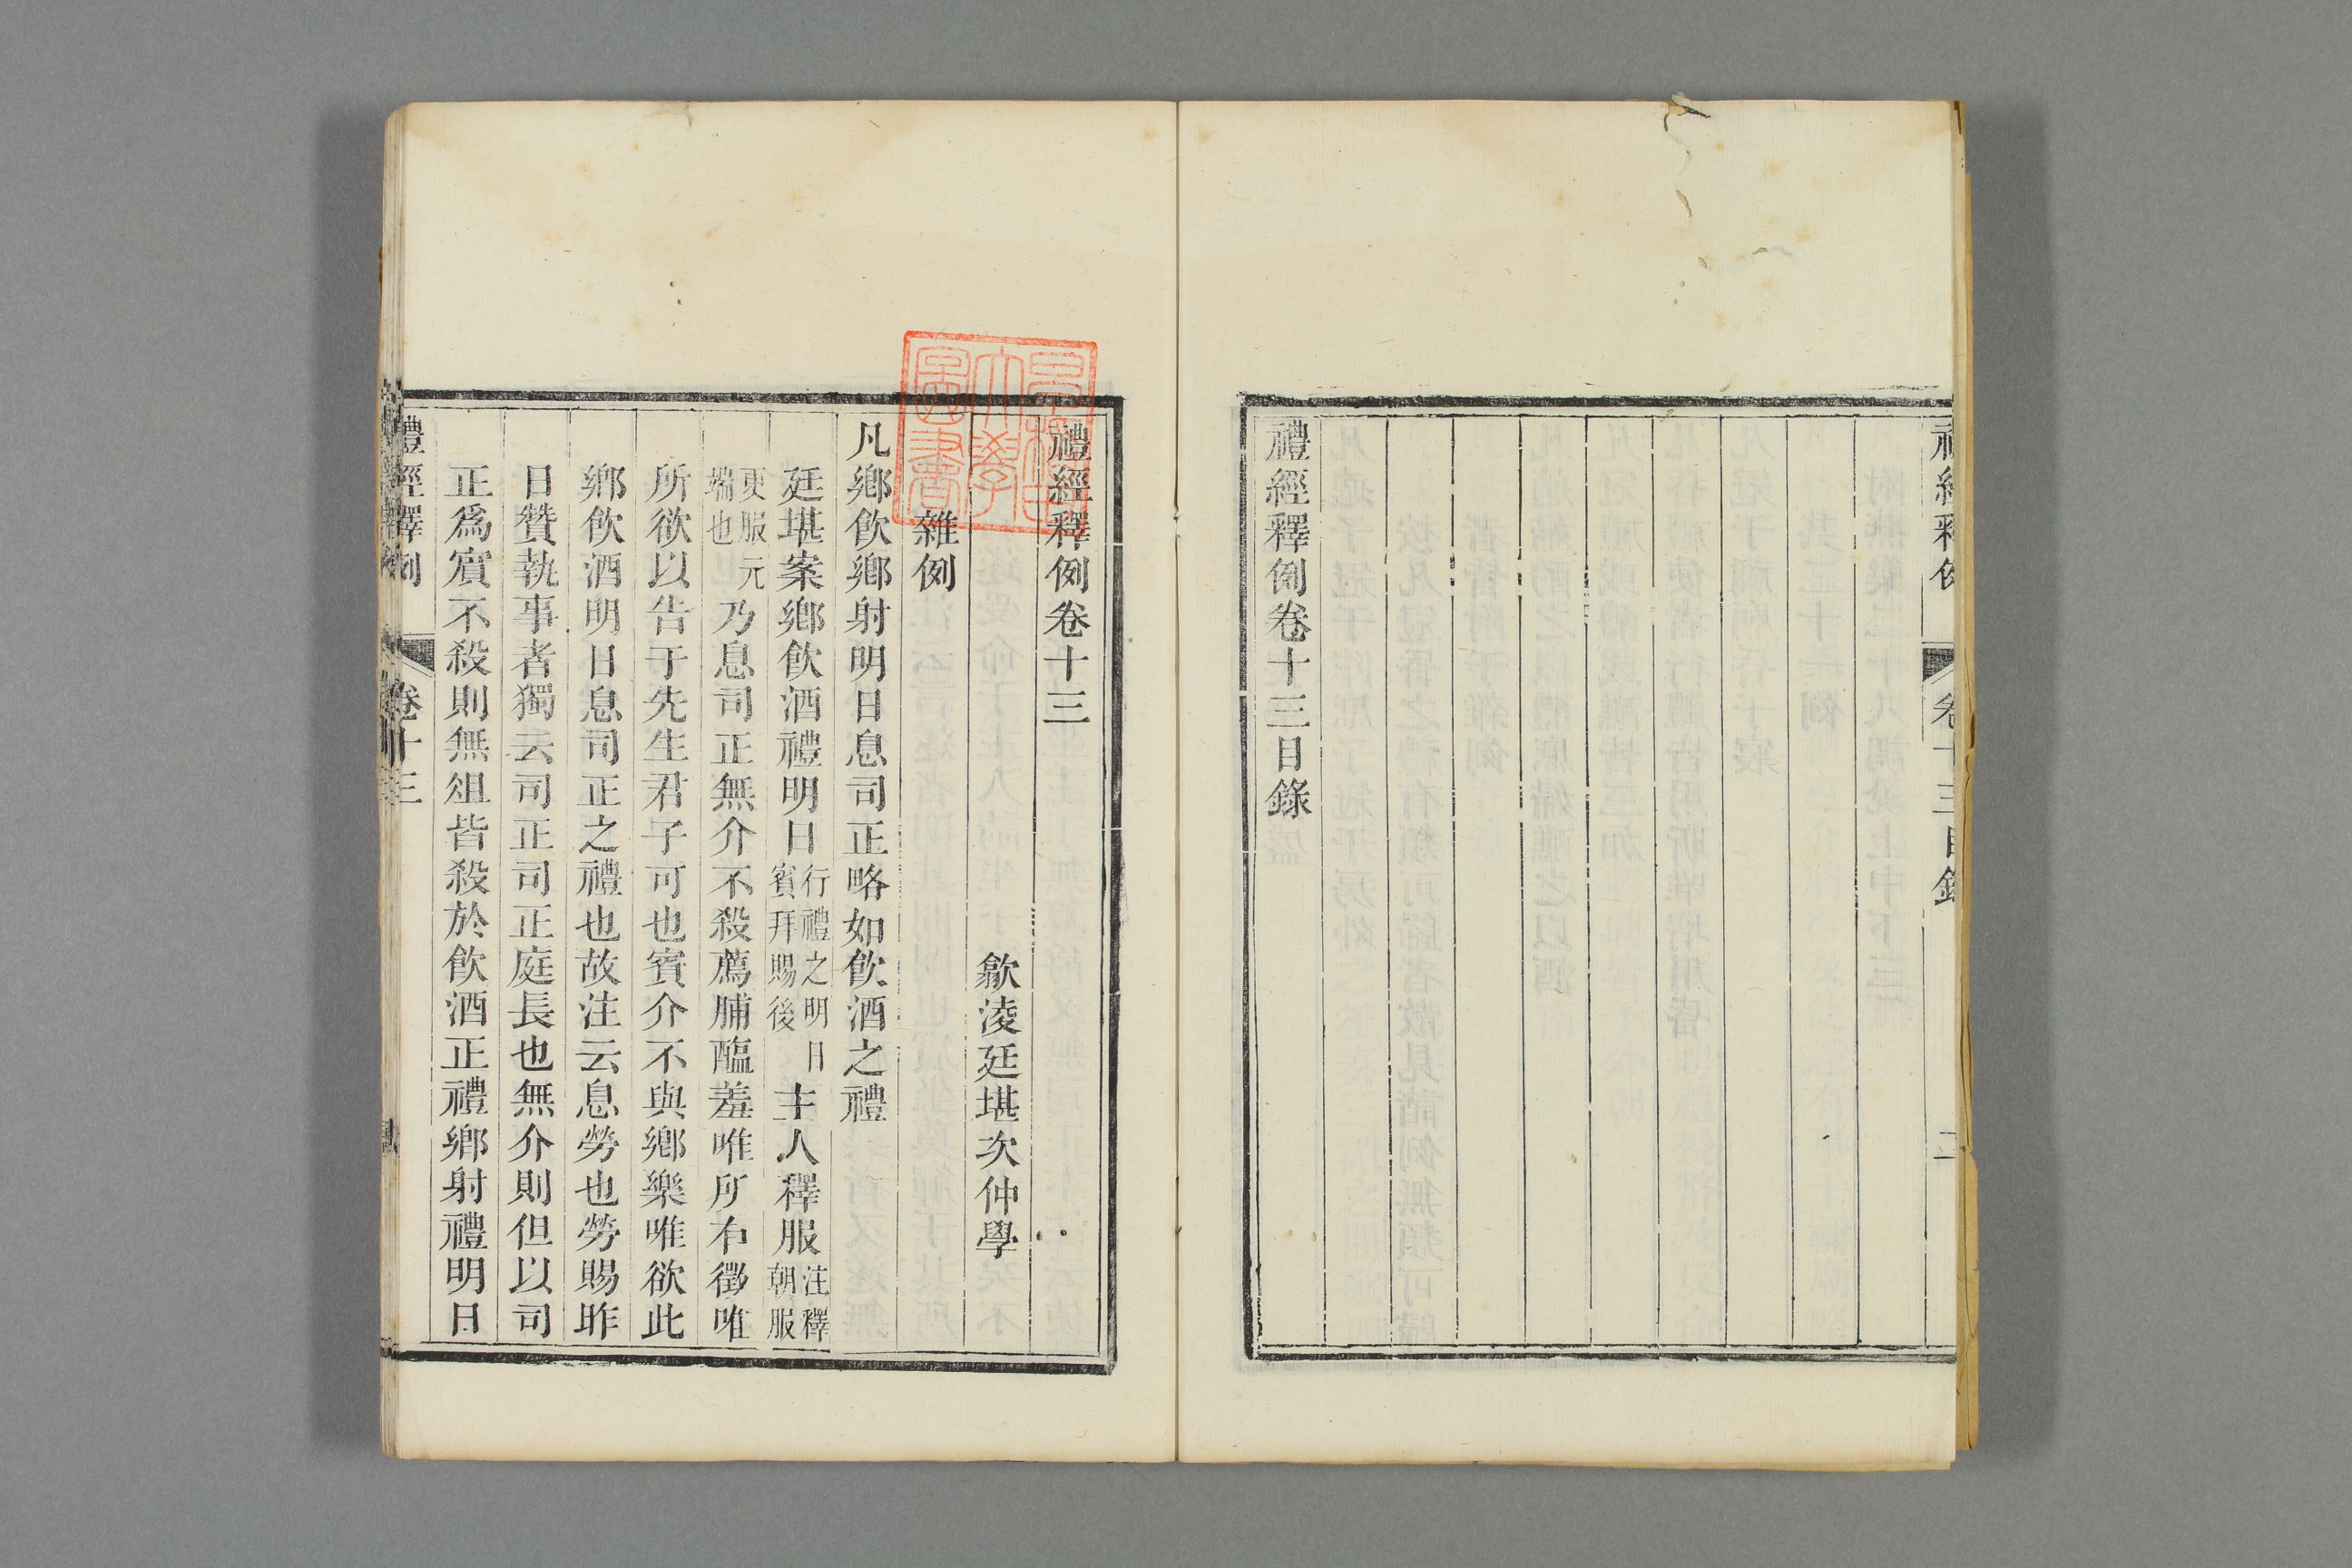 禮經釋例 卷十三目錄 二
禮經釋例卷十三目錄
禮經釋例卷十三
歙淩廷堪次仲學
雜例
凡鄉飲鄉射明日息司正略如飲酒之禮
廷堪案鄉飲酒禮明日行禮之明日賓拜賜後主人釋服注釋朝服
更服元端也乃息司正無介不殺薦脯醢羞唯所有徵唯
所欲以告于先生君子可也賓介不與鄉樂唯欲此
鄉飲酒明日息司正之禮也故注云息勞也勞賜昨
日贊執事者獨云司正司正庭長也無介則但以司
正爲賓不殺則無俎皆殺於飲酒正禮鄉射禮明日
禮經釋例 卷十三